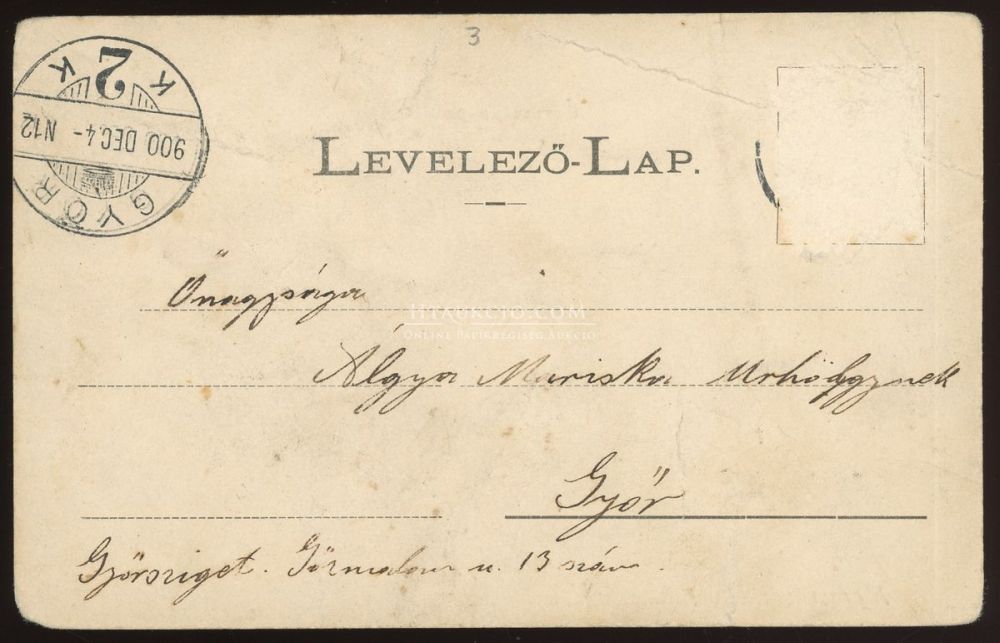 3
GYŐR
900 DEC.4 - N12
K 2 K
LEVELEZŐ-LAP.
Őnagysága
HTAUKCIO.COM
ONLINE PAPÍRRÉGISÉG AUKCIÓ
Álgya Mariska Urhölgynek
Győr
Győrsziget. Gőzmalom u. 13 szám.